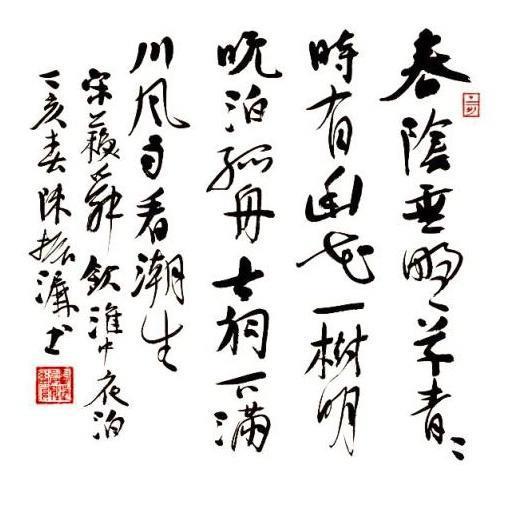 春陰垂野草青〻
時有幽花一樹明
晚泊孤舟古祠下滿
川風雨看潮生
宋蘇舜欽淮中夜泊
丁亥春陳振濂书